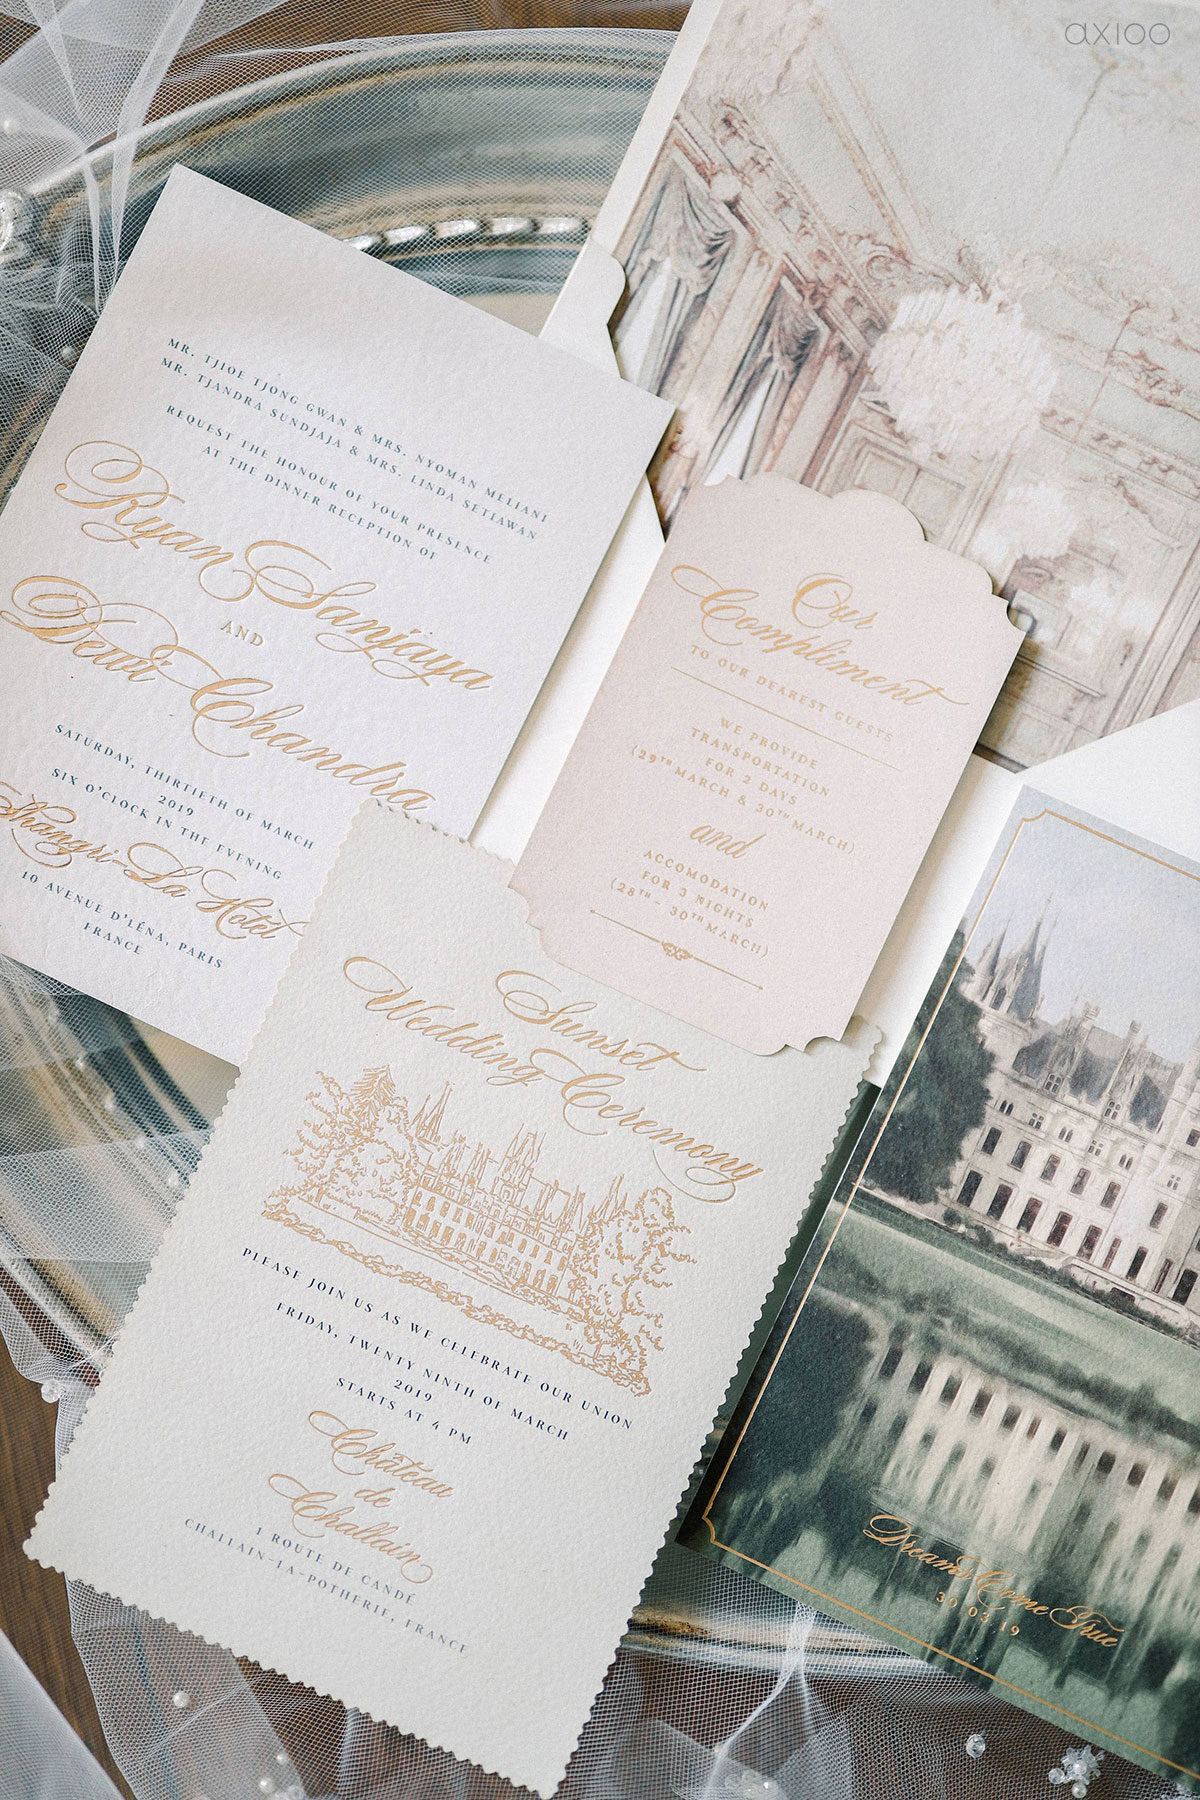 axioo
MR. TJIOE TJONG GWAN & MRS. NYOMAN MELIANI
MR. TJANDRA SUNDJAJA & MRS. LINDA SETIAWAN
REQUEST THE HONOUR OF YOUR PRESENCE
AT THE DINNER RECEPTION OF
Ryan Sanjaya
AND
Dewi Chandra
SATURDAY, THIRTIETH OF MARCH
2019
SIX O'CLOCK IN THE EVENING
Shangri-La Hotel
10 AVENUE D'LÉNA, PARIS
FRANCE
Our
Compliment
TO OUR DEAREST GUESTS
WE PROVIDE
TRANSPORTATION
FOR 2 DAYS
(29TH MARCH & 30TH MARCH)
and
ACCOMODATION
FOR 3 NIGHTS
(28TH - 30TH MARCH)
Sunset
Wedding Ceremony
PLEASE JOIN US AS WE CELEBRATE OUR UNION
FRIDAY, TWENTY NINTH OF MARCH
2019
STARTS AT 4 PM
Château
de
Challain
1 ROUTE DE CANDÉ
CHALLAIN-LA-POTHERIE, FRANCE
Dreams Come True
30.03.19